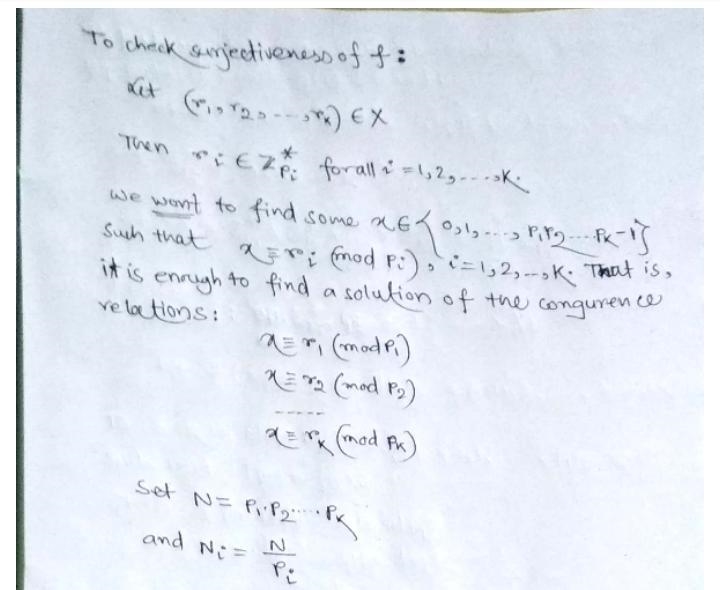 To check surjectiveness of f :
Let (r₁, r₂, ---, rₖ) ∈ X
Then rᵢ ∈ Z*_{pᵢ} for all i = 1, 2, ---, K.
We want to find some x ∈ {0, 1, ---, P₁P₂ --- Pₖ-1}
Such that x ≡ rᵢ (mod Pᵢ), i = 1, 2, --, K. That is,
it is enough to find a solution of the congurence
relations:
x ≡ r₁ (mod P₁)
x ≡ r₂ (mod P₂)
-----
x ≡ rₖ (mod Pₖ)
Set N = P₁.P₂.....Pₖ
and Nᵢ = N/Pᵢ